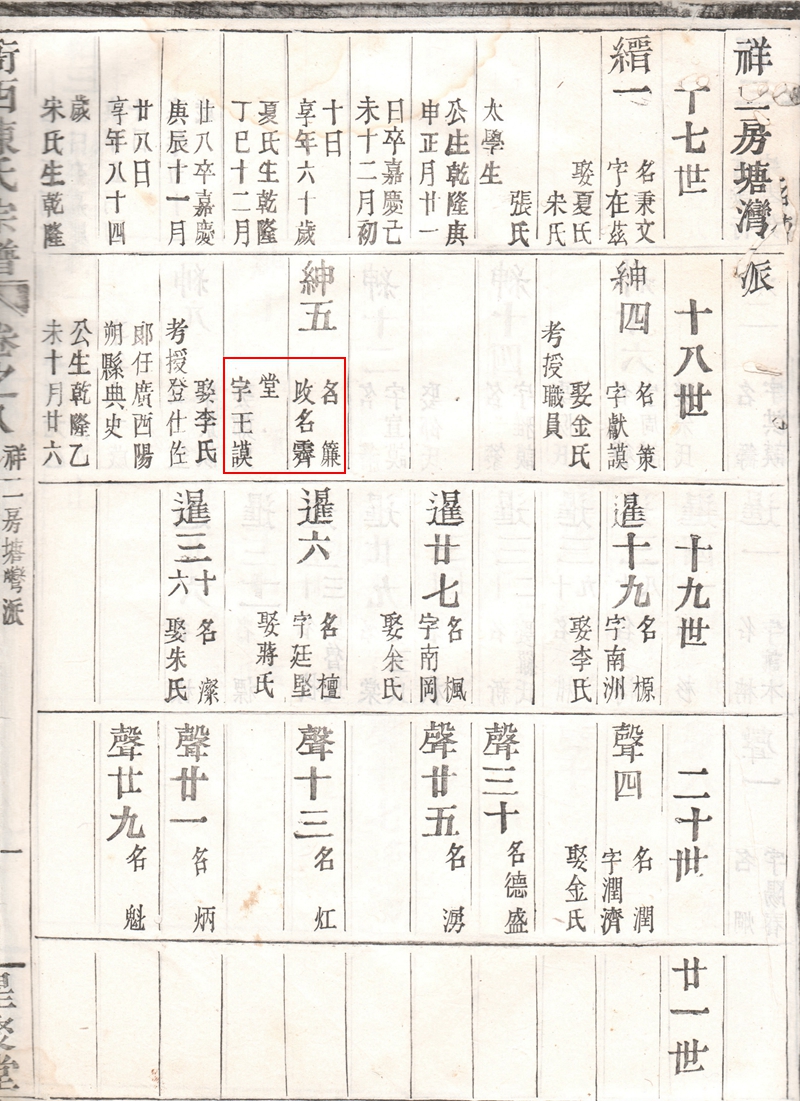 祥二房塘灣派
十七世
縉一
名秉文
字在茲
娶夏氏
宋氏
張氏
太學生
公生乾隆庚
申正月廿一
日卒嘉慶己
未十二月初
十日
享年六十歲
夏氏生乾隆
丁巳十二月
廿八卒嘉慶
庚辰十一月
廿八日
享年八十四
歲
宋氏生乾隆
十八世
紳四
名策
字獻謨
娶金氏
考授職員
紳五
名簾
改名霽
堂
字王謨
娶李氏
考授登仕佐
郎任廣西陽
朔縣典史
公生乾隆乙
未十月廿六
十九世
暹十九
名榞
字南洲
娶李氏
暹廿七
名楓
字南岡
娶余氏
暹六
名檀
字廷堅
娶蔣氏
暹三十六
名濴
娶朱氏
二十世
聲四
名潤
字潤濟
娶金氏
聲三十
名德盛
聲廿五
名湧
聲十三
名灴
聲廿一
名炳
聲廿九
名魁
廿一世
西陳氏宗譜
卷之八
祥二房塘灣派
一
星聚堂